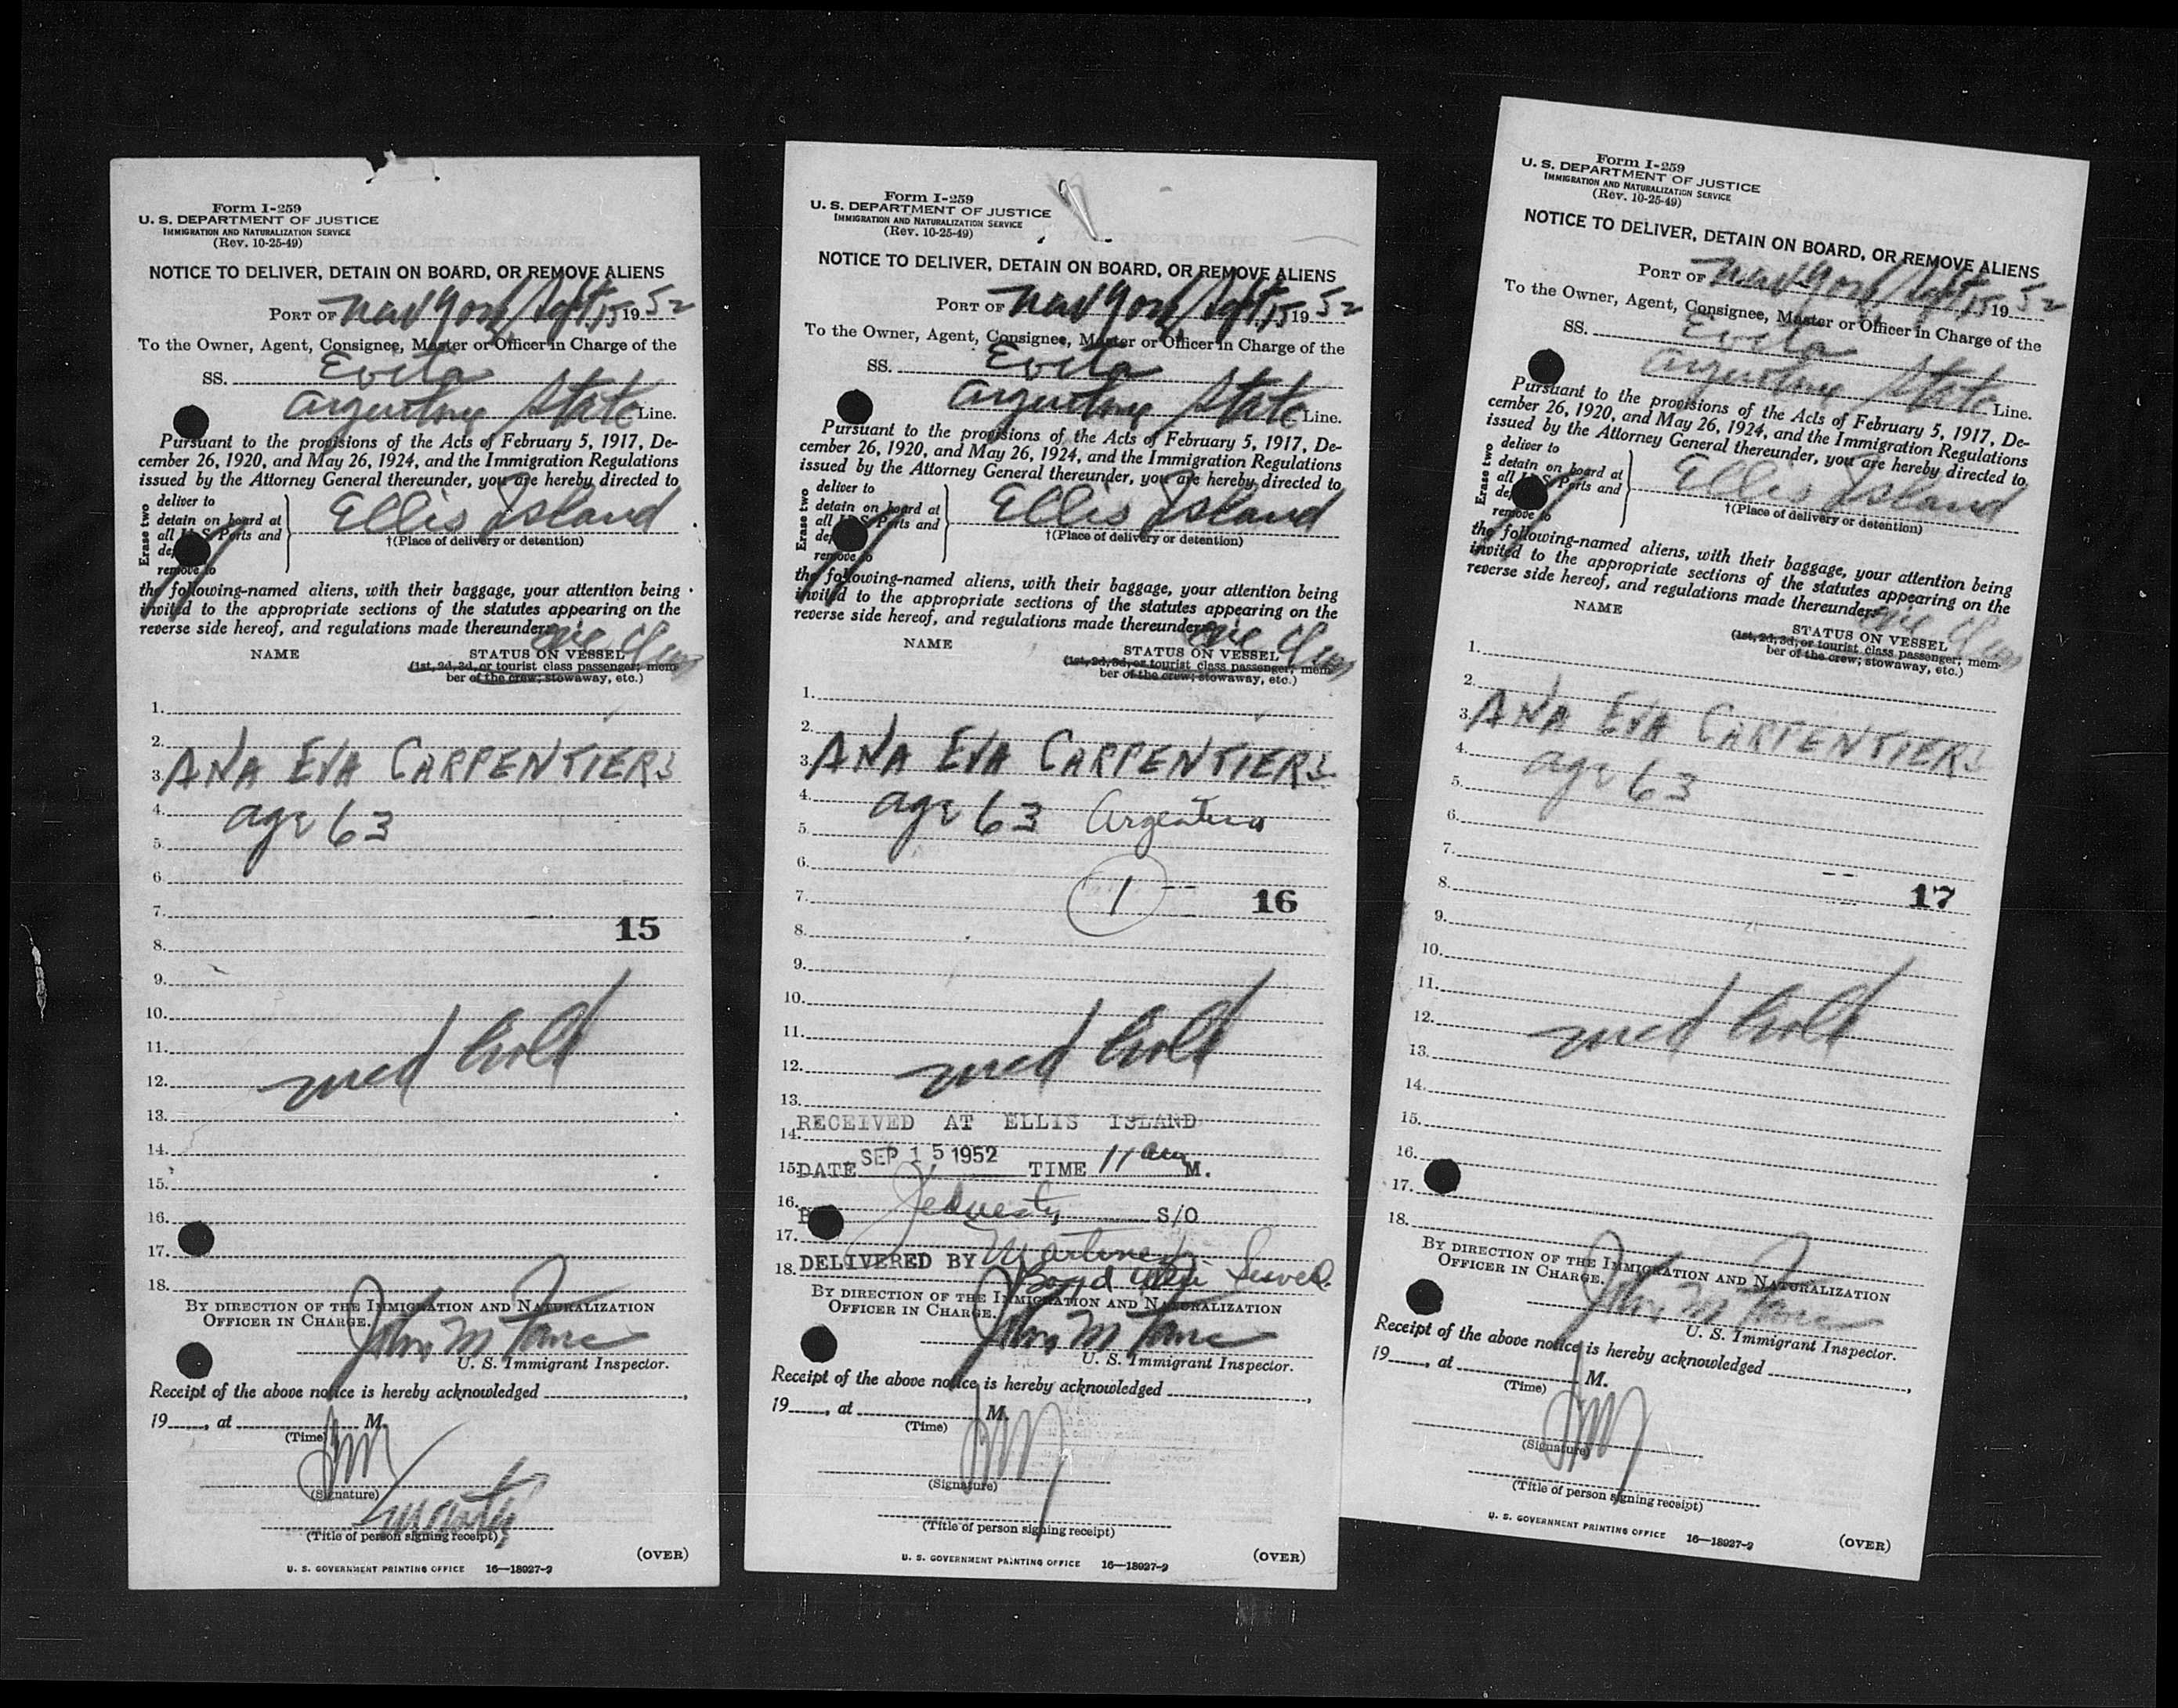 Form I-259
U. S. DEPARTMENT OF JUSTICE
IMMIGRATION AND NATURALIZATION SERVICE
(Rev. 10-25-49)
NOTICE TO DELIVER, DETAIN ON BOARD, OR REMOVE ALIENS
PORT OF New York / Sept, 15 1952
To the Owner, Agent, Consignee, Master or Officer in Charge of the
SS. Evita
Argentine State Line.
Pursuant to the provisions of the Acts of February 5, 1917, De-
cember 26, 1920, and May 26, 1924, and the Immigration Regulations
issued by the Attorney General thereunder, you are hereby directed to
Erase two
deliver to
detain on board at
all U. S. Ports and
de
remove to
Ellis Island
†(Place of delivery or detention)
the following-named aliens, with their baggage, your attention being
invited to the appropriate sections of the statutes appearing on the
reverse side hereof, and regulations made thereunder:
one Class
NAME
STATUS ON VESSEL
(1st, 2d, 3d, or tourist class passenger; mem-
ber of the crew; stowaway, etc.)
1.
2.
3. ANA EVA CARPENTIERS
4. age 63
5.
6.
7.
15
8.
9.
10.
11.
12. med hold
13.
14.
15.
16.
17.
18.
BY DIRECTION OF THE IMMIGRATION AND NATURALIZATION
OFFICER IN CHARGE.
John M
U. S. Immigrant Inspector.
Receipt of the above notice is hereby acknowledged ,
19 , at M.
(Time)
(Signature)
(Title of person signing receipt)
(OVER)
U. S. GOVERNMENT PRINTING OFFICE 16—18027-2
Form I-259
U. S. DEPARTMENT OF JUSTICE
IMMIGRATION AND NATURALIZATION SERVICE
(Rev. 10-25-49)
NOTICE TO DELIVER, DETAIN ON BOARD, OR REMOVE ALIENS
PORT OF New York / Sept, 15 1952
To the Owner, Agent, Consignee, Master or Officer in Charge of the
SS. Evita
Argentine State Line.
Pursuant to the provisions of the Acts of February 5, 1917, De-
cember 26, 1920, and May 26, 1924, and the Immigration Regulations
issued by the Attorney General thereunder, you are hereby directed to
Erase two
deliver to
detain on board at
all U. S. Ports and
de
remove to
Ellis Island
†(Place of delivery or detention)
the following-named aliens, with their baggage, your attention being
invited to the appropriate sections of the statutes appearing on the
reverse side hereof, and regulations made thereunder:
one Class
NAME
STATUS ON VESSEL
(1st, 2d, 3d, or tourist class passenger; mem-
ber of the crew; stowaway, etc.)
1.
2.
3. ANA EVA CARPENTIERS
4. age 63 Argentina
5.
6.
7. 1 16
8.
9.
10.
11.
12. med hold
13.
RECEIVED AT ELLIS ISLAND
14.
15. DATE SEP 15 1952 TIME 11 am M.
16.
S/O
17.
DELIVERED BY Martinez
18.
BY DIRECTION OF THE IMMIGRATION AND NATURALIZATION
OFFICER IN CHARGE.
John M
U. S. Immigrant Inspector.
Receipt of the above notice is hereby acknowledged ,
19 , at M.
(Time)
(Signature)
(Title of person signing receipt)
(OVER)
U. S. GOVERNMENT PRINTING OFFICE 16—18027-2
Form I-259
U. S. DEPARTMENT OF JUSTICE
IMMIGRATION AND NATURALIZATION SERVICE
(Rev. 10-25-49)
NOTICE TO DELIVER, DETAIN ON BOARD, OR REMOVE ALIENS
PORT OF New York / Sept, 15 1952
To the Owner, Agent, Consignee, Master or Officer in Charge of the
SS. Evita
Argentine State Line.
Pursuant to the provisions of the Acts of February 5, 1917, De-
cember 26, 1920, and May 26, 1924, and the Immigration Regulations
issued by the Attorney General thereunder, you are hereby directed to
Erase two
deliver to
detain on board at
all U. S. Ports and
de
remove to
Ellis Island
†(Place of delivery or detention)
the following-named aliens, with their baggage, your attention being
invited to the appropriate sections of the statutes appearing on the
reverse side hereof, and regulations made thereunder:
one Class
NAME
STATUS ON VESSEL
(1st, 2d, 3d, or tourist class passenger; mem-
ber of the crew; stowaway, etc.)
1.
2.
3. ANA EVA CARPENTIERS
4. age 63
5.
6.
7.
17
8.
9.
10.
11.
12. med hold
13.
14.
15.
16.
17.
18.
BY DIRECTION OF THE IMMIGRATION AND NATURALIZATION
OFFICER IN CHARGE.
John M
U. S. Immigrant Inspector.
Receipt of the above notice is hereby acknowledged ,
19 , at M.
(Time)
(Signature)
(Title of person signing receipt)
U. S. GOVERNMENT PRINTING OFFICE 16—18027-2
(OVER)